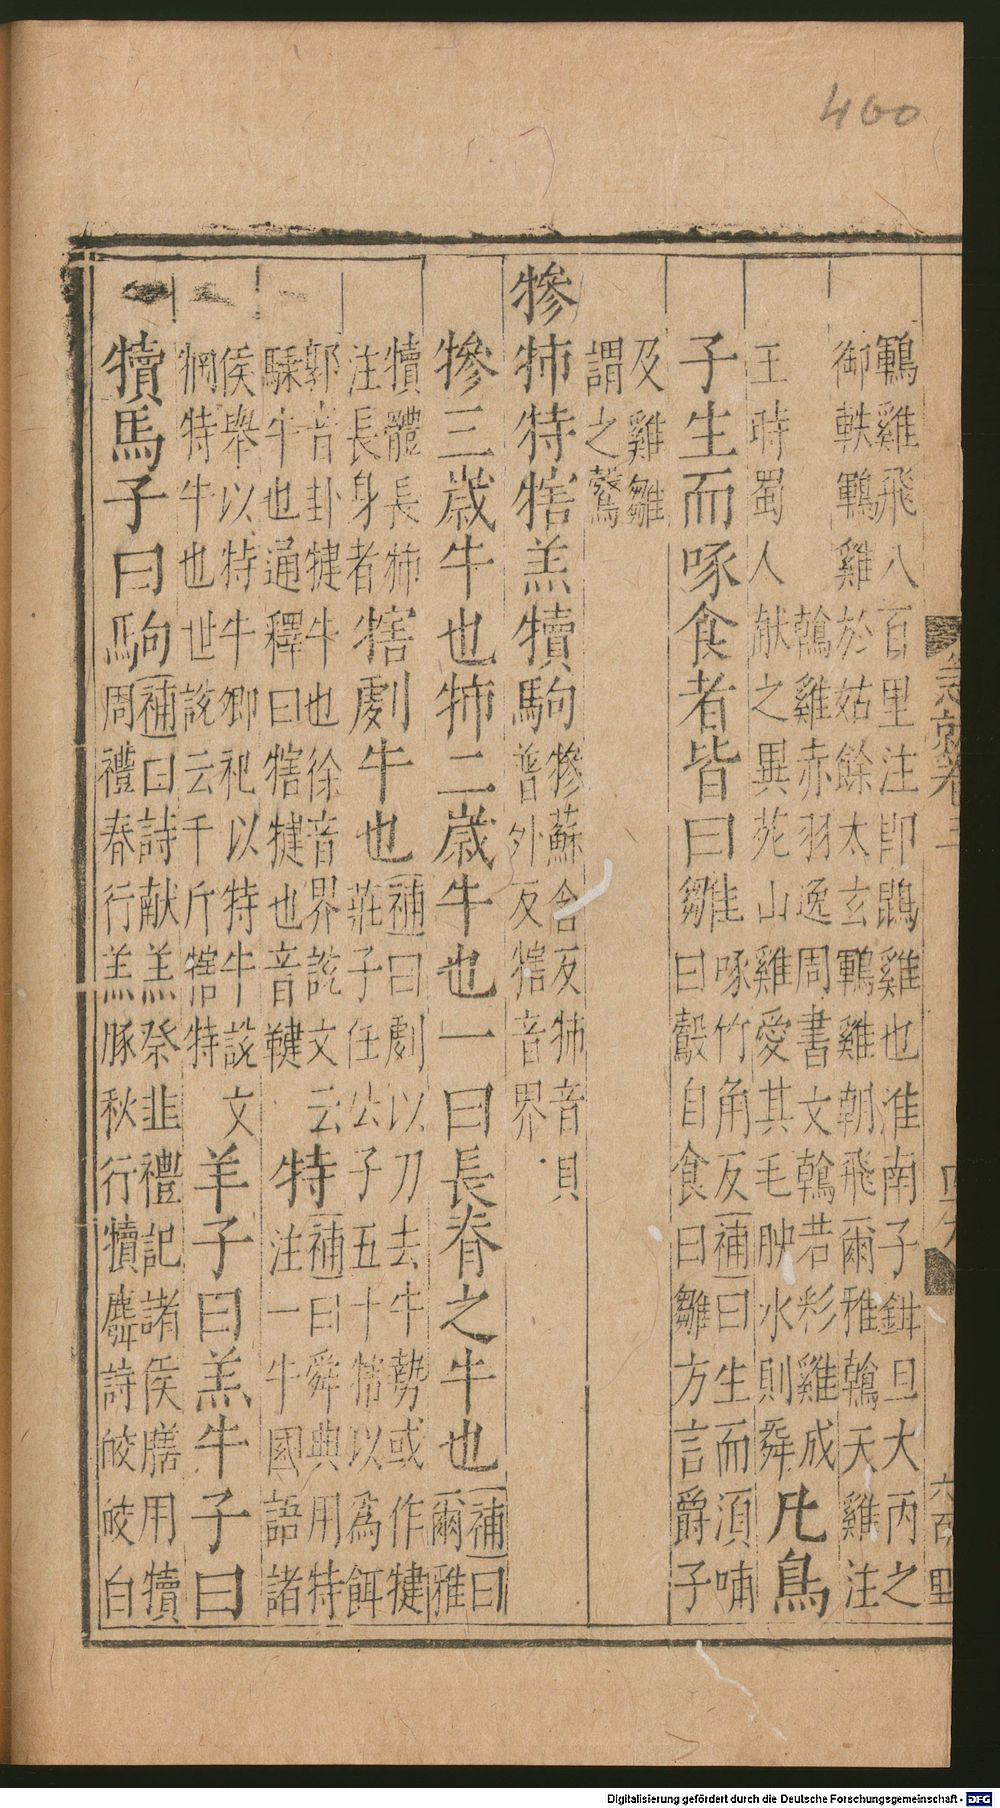 460
鶤雞飛八百里注即鵾雞也淮南子鉗且大丙之
御軼鶤雞於姑餘太玄鶤雞朝飛爾雅鶾天雞注
鶾雞赤羽逸周書文鶾若彩雞成
王時蜀人献之異苑山雞愛其毛映水則舞
凡鳥
子生而啄食者皆曰雛
啄竹角反補曰生而須哺
曰鷇自食曰雛方言爵子
及雞雛
謂之鷇
犙㹑特犗羔犢駒
犙蘇含反㹑音貝
普外反犗音界
犙三歲牛也㹑二歲牛也一曰長脊之牛也
補曰
爾雅
犢體長㹑
注長身者
犗劇牛也
補曰劇以刀去牛勢或作犍
莊子任公子五十犗以為餌
郭音卦犍牛也徐音界說文云
騬牛也通釋曰犗犍也音鞬
特
補曰舜典用特
注一牛國語諸
侯舉以特牛卿祀以特牛說文
㹇特牛也世說云千斤犗特
羊子曰羔牛子曰
犢馬子曰駒
補曰詩献羔祭韭禮記諸侯膳用犢
周禮春行羔豚秋行犢麛詩皎皎白
卷三
六百里
Digitalisierung gefördert durch die Deutsche Forschungsgemeinschaft - DFG